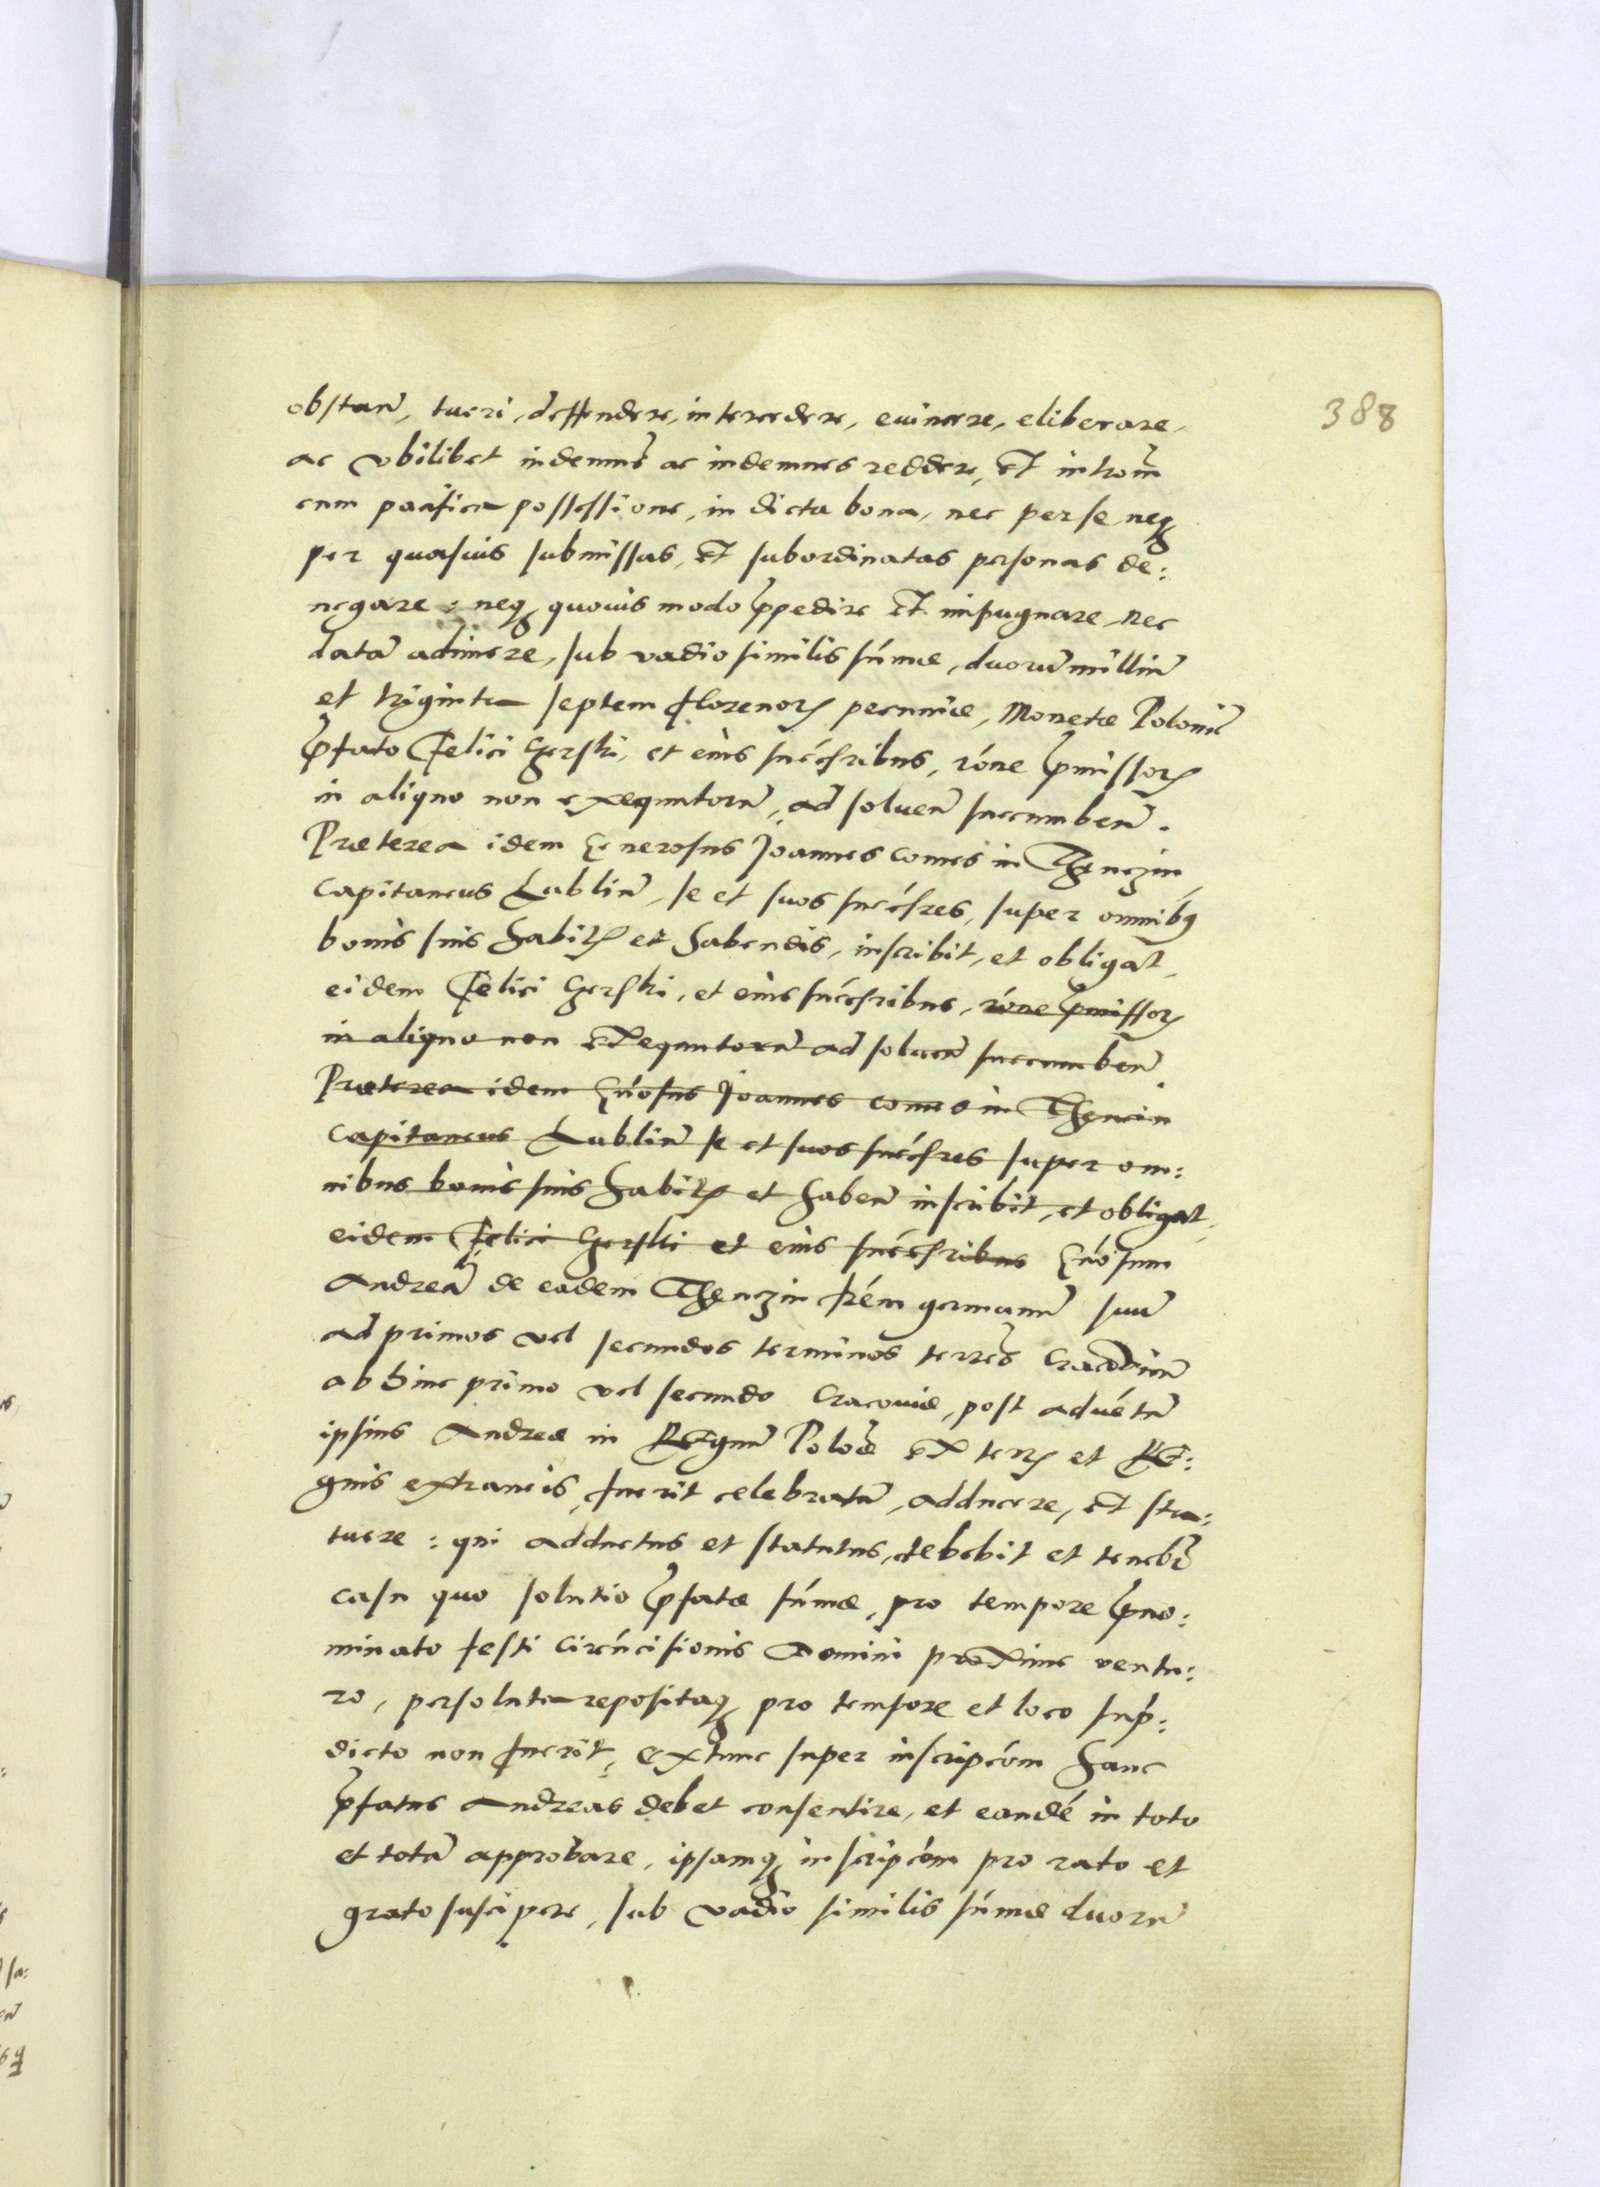 388
obstan̄, tueri, deffendere, intercedere, euincere, eliberare,
ac vbilibet indemnē ac indemnes reddere, et introm̄
cum pacifica possessione, in dicta bona, nec per se neq3
per quasuis submissas, et subordinatas personas de:
negare: neq3 quouis modo p̄pedire et impugnare, nec
datā adimere, sub vadio similis sūmæ, duorū milliū
et triginta septem florenor3 pecuniæ, Monetæ Polonię
p̄fato Felici Gerski, et eius succ̄sribus, rōne p̄missor3
in aliquo non exequutorū, ad soluen̄ succumben̄.
Præterea idem Generosus Joannes comes in Thęnczin
Capitaneus Lublin̄, se et suos succ̄sres, super omnib9
bonis suis habit3 et habendis, inscribit, et obligat,
eidem Felici Gerski, et eius succ̄sribus, rōne p̄missor3
in aliquo non exequutorū ad soluen̄ succumben̄.
Præterea idem Gn̄osus Joannes comes in Thęncin
Capitaneus Lublin̄ se et suos succ̄sres super om:
nibus bonis suis habit3 et haben̄ inscribit, et obligat,
eidem Felici Gerski et eius succ̄sribus Gn̄osum
Andreā de eadem Thęnczin frēm germanū suū
ad primos vel secundos terminos terrēs Cracouien̄
abhinc primo vel secundo Cracouiæ, post aduētū
ipsius Andreæ in Regnū Polōæ ex ter3 et Re:
gnis extraneis, fuerit celebratū, adducere, et sta:
tuere: qui adductus et statutus, debebit et tenebr̄
casu quo solutio p̄fatæ sūmæ, pro tempore p̄no:
minato festi Circūcisionis Domini proxime ventu:
ro, persoluta repositaq3 pro tempore et loco sup̄:
dicto non fuerit, extunc super inscripcōm hanc
p̄fatus Andreas debet consentire, et eandē in toto
et totā approbare, ipsamq3 inscripcōm pro rato et
grato suscipere, sub vadio similis sūmæ duorū